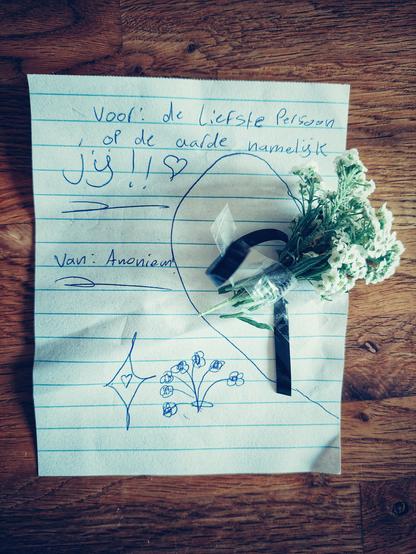 Voor: de liefste Persoon
op de aarde namelijk
jij!!
Van: Anoniem!